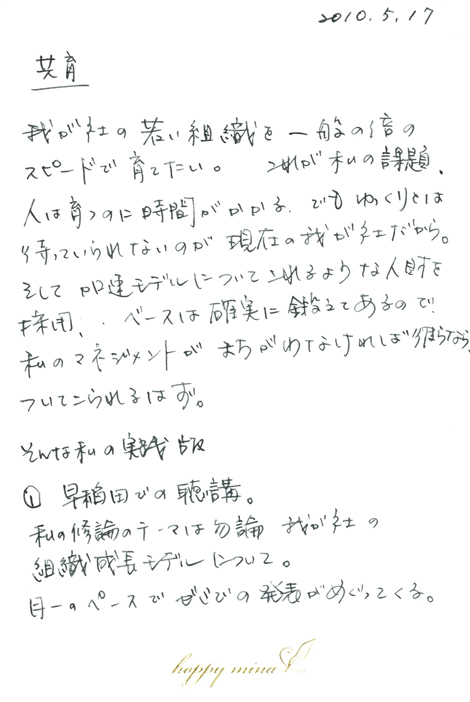 2010.5.17
共育
我が社の若い組織を一般の倍の
スピードで育てたい。 これが私の課題、
人は育つのに時間がかかる、でもゆっくりとは
待っていられないのが現在の我が社だから。
そして加速モデルについてこれるような人財を
採用、・ベースは確実に鍛えてあるので
私のマネジメントがまちがわなければ彼らなら、
ついてこられるはず。
そんな私の実践版
① 早稲田での聴講。
私の修論のテーマは勿論 我が社の
組織成長モデルについて。
月一のペースでゼミでの発表がめぐってくる。
happy mina